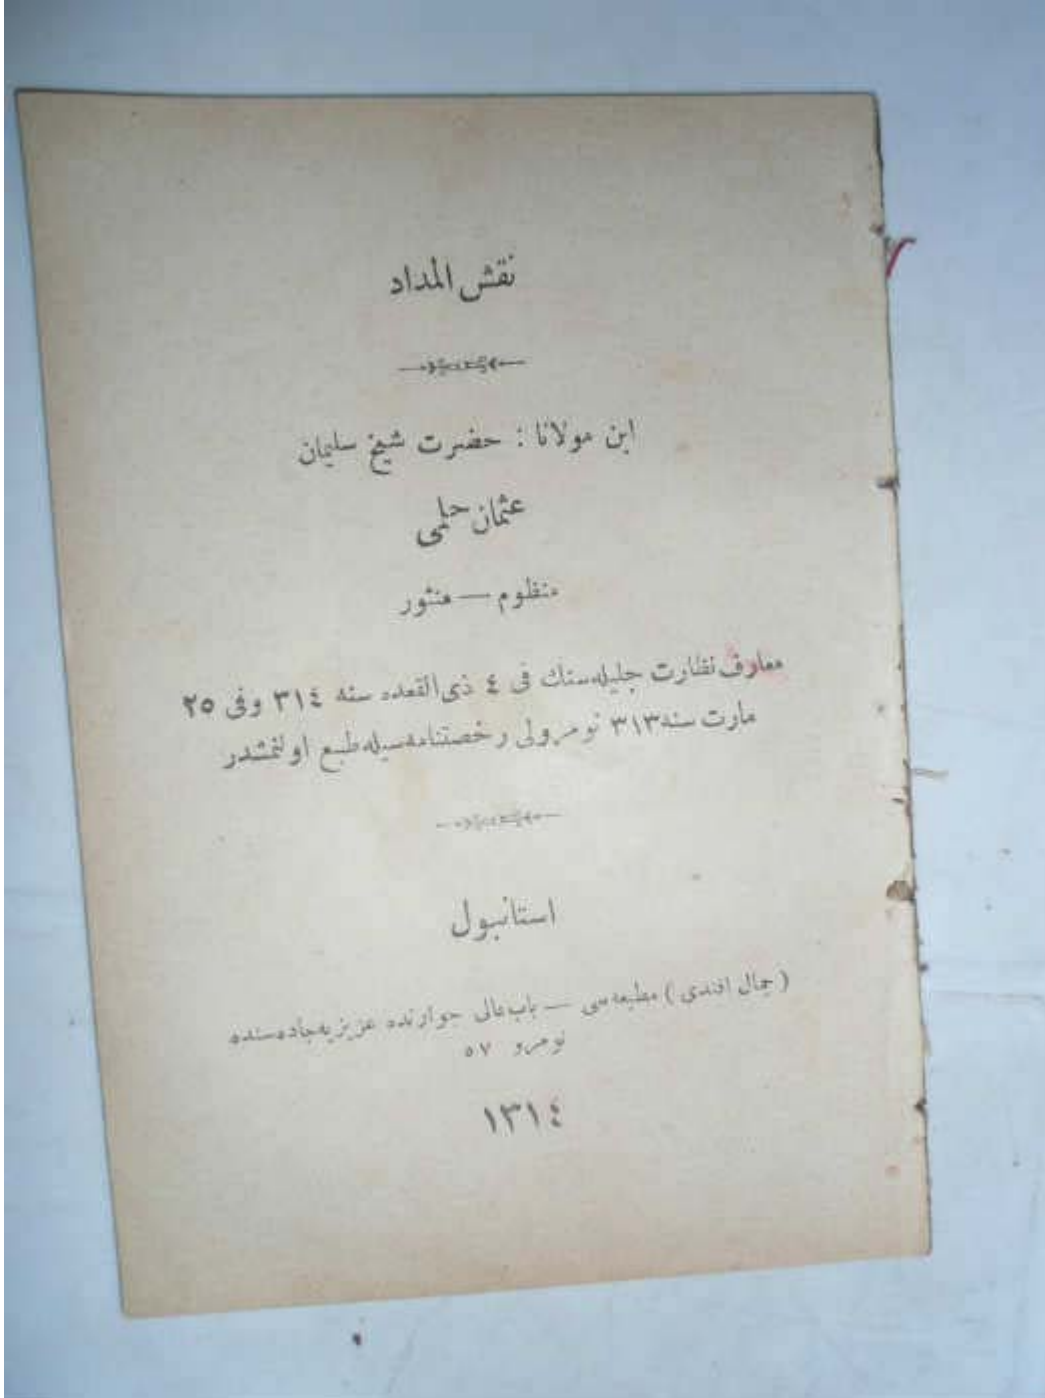 نقش المداد
ابن مولانا : حضرت شيخ سليمان
عثمان حلمى
منظوم — منثور
معارف نظارت جليله‌سنك فى ٤ ذى القعده سنه ٣١٤ وفى ٢٥
مارت سنه ٣١٣ نومرولى رخصتنامه‌سيله طبع اولنمشدر
استانبول
( جمال افندى ) مطبعه‌سى — باب عالى جوارنده عزيزيه جاده‌سنده
نومرو ٥٧
١٣١٤